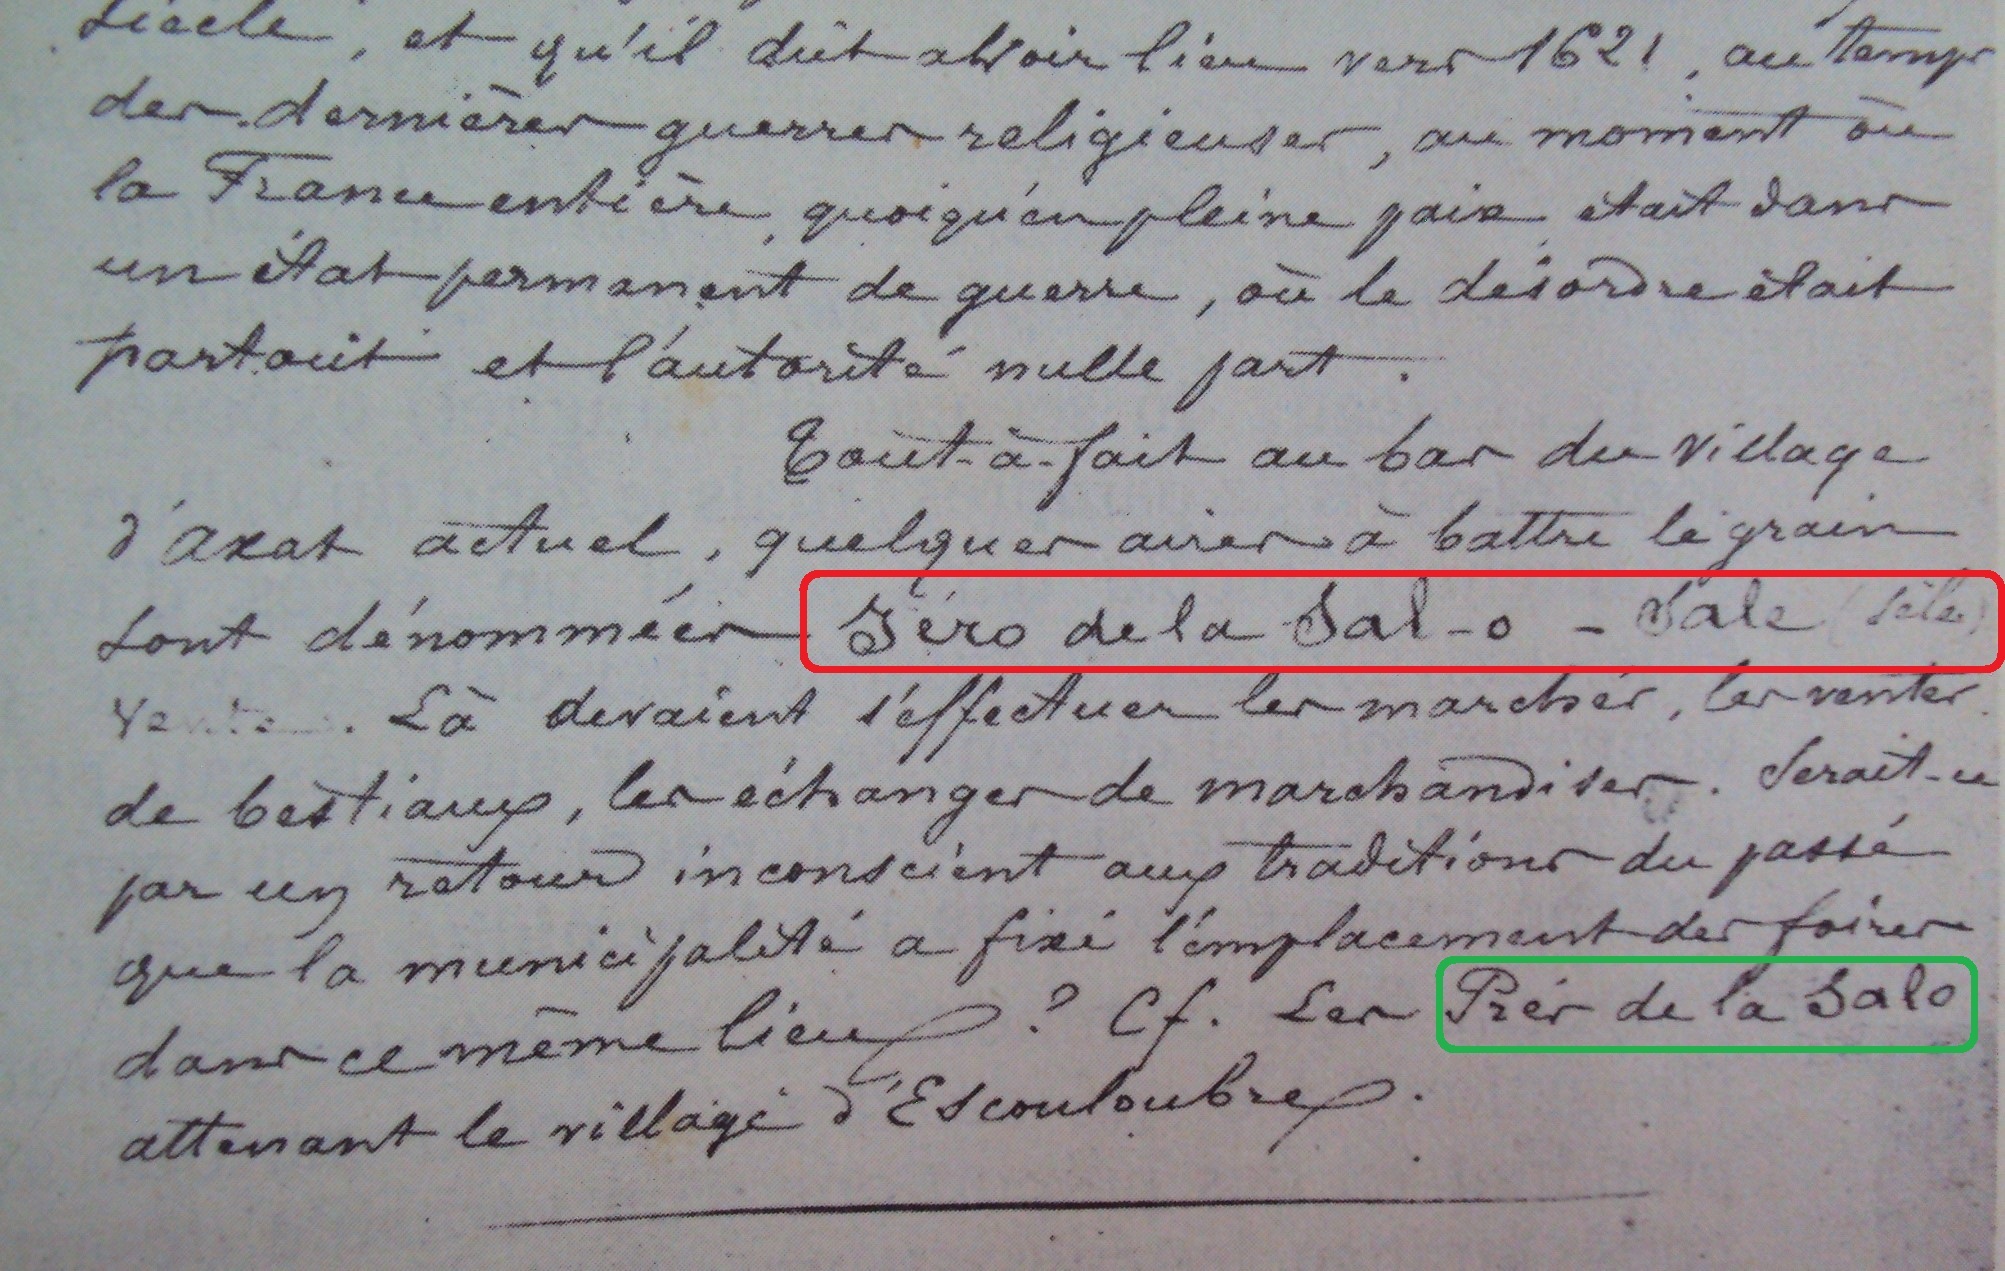 siècle, et qu'il dût avoir lieu vers 1621, au temps
des dernières guerres religieuses, au moment où
la France entière, quoiqu'en pleine paix était dans
un état permanent de guerre, où le désordre était
partout et l'autorité nulle part.
Tout-à-fait au bas du village
d'Axat actuel, quelques aires à battre le grain
sont dénommées Iéro de la Sal-o - Sale (
Vente. Là devaient s'effectuer les marchés, les ventes
de bestiaux, les échanges de marchandises. Serait-ce
par un retour inconscient aux traditions du passé
que la municipalité a fixé l'emplacement des foires
dans ce même lieu ? Cf. Les Prés de la Salo
attenant le village d'Escouloubre.